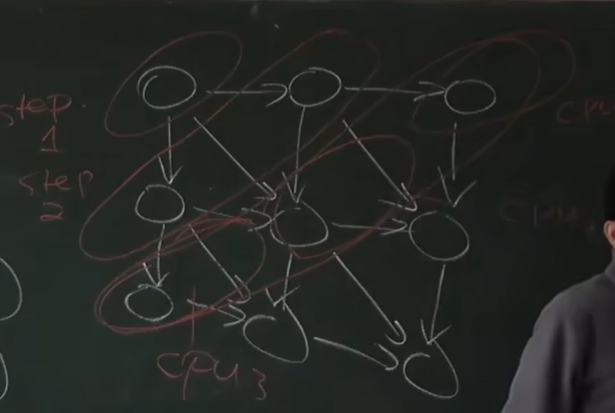 step
1
step
2
cpu
cpu
cpu3